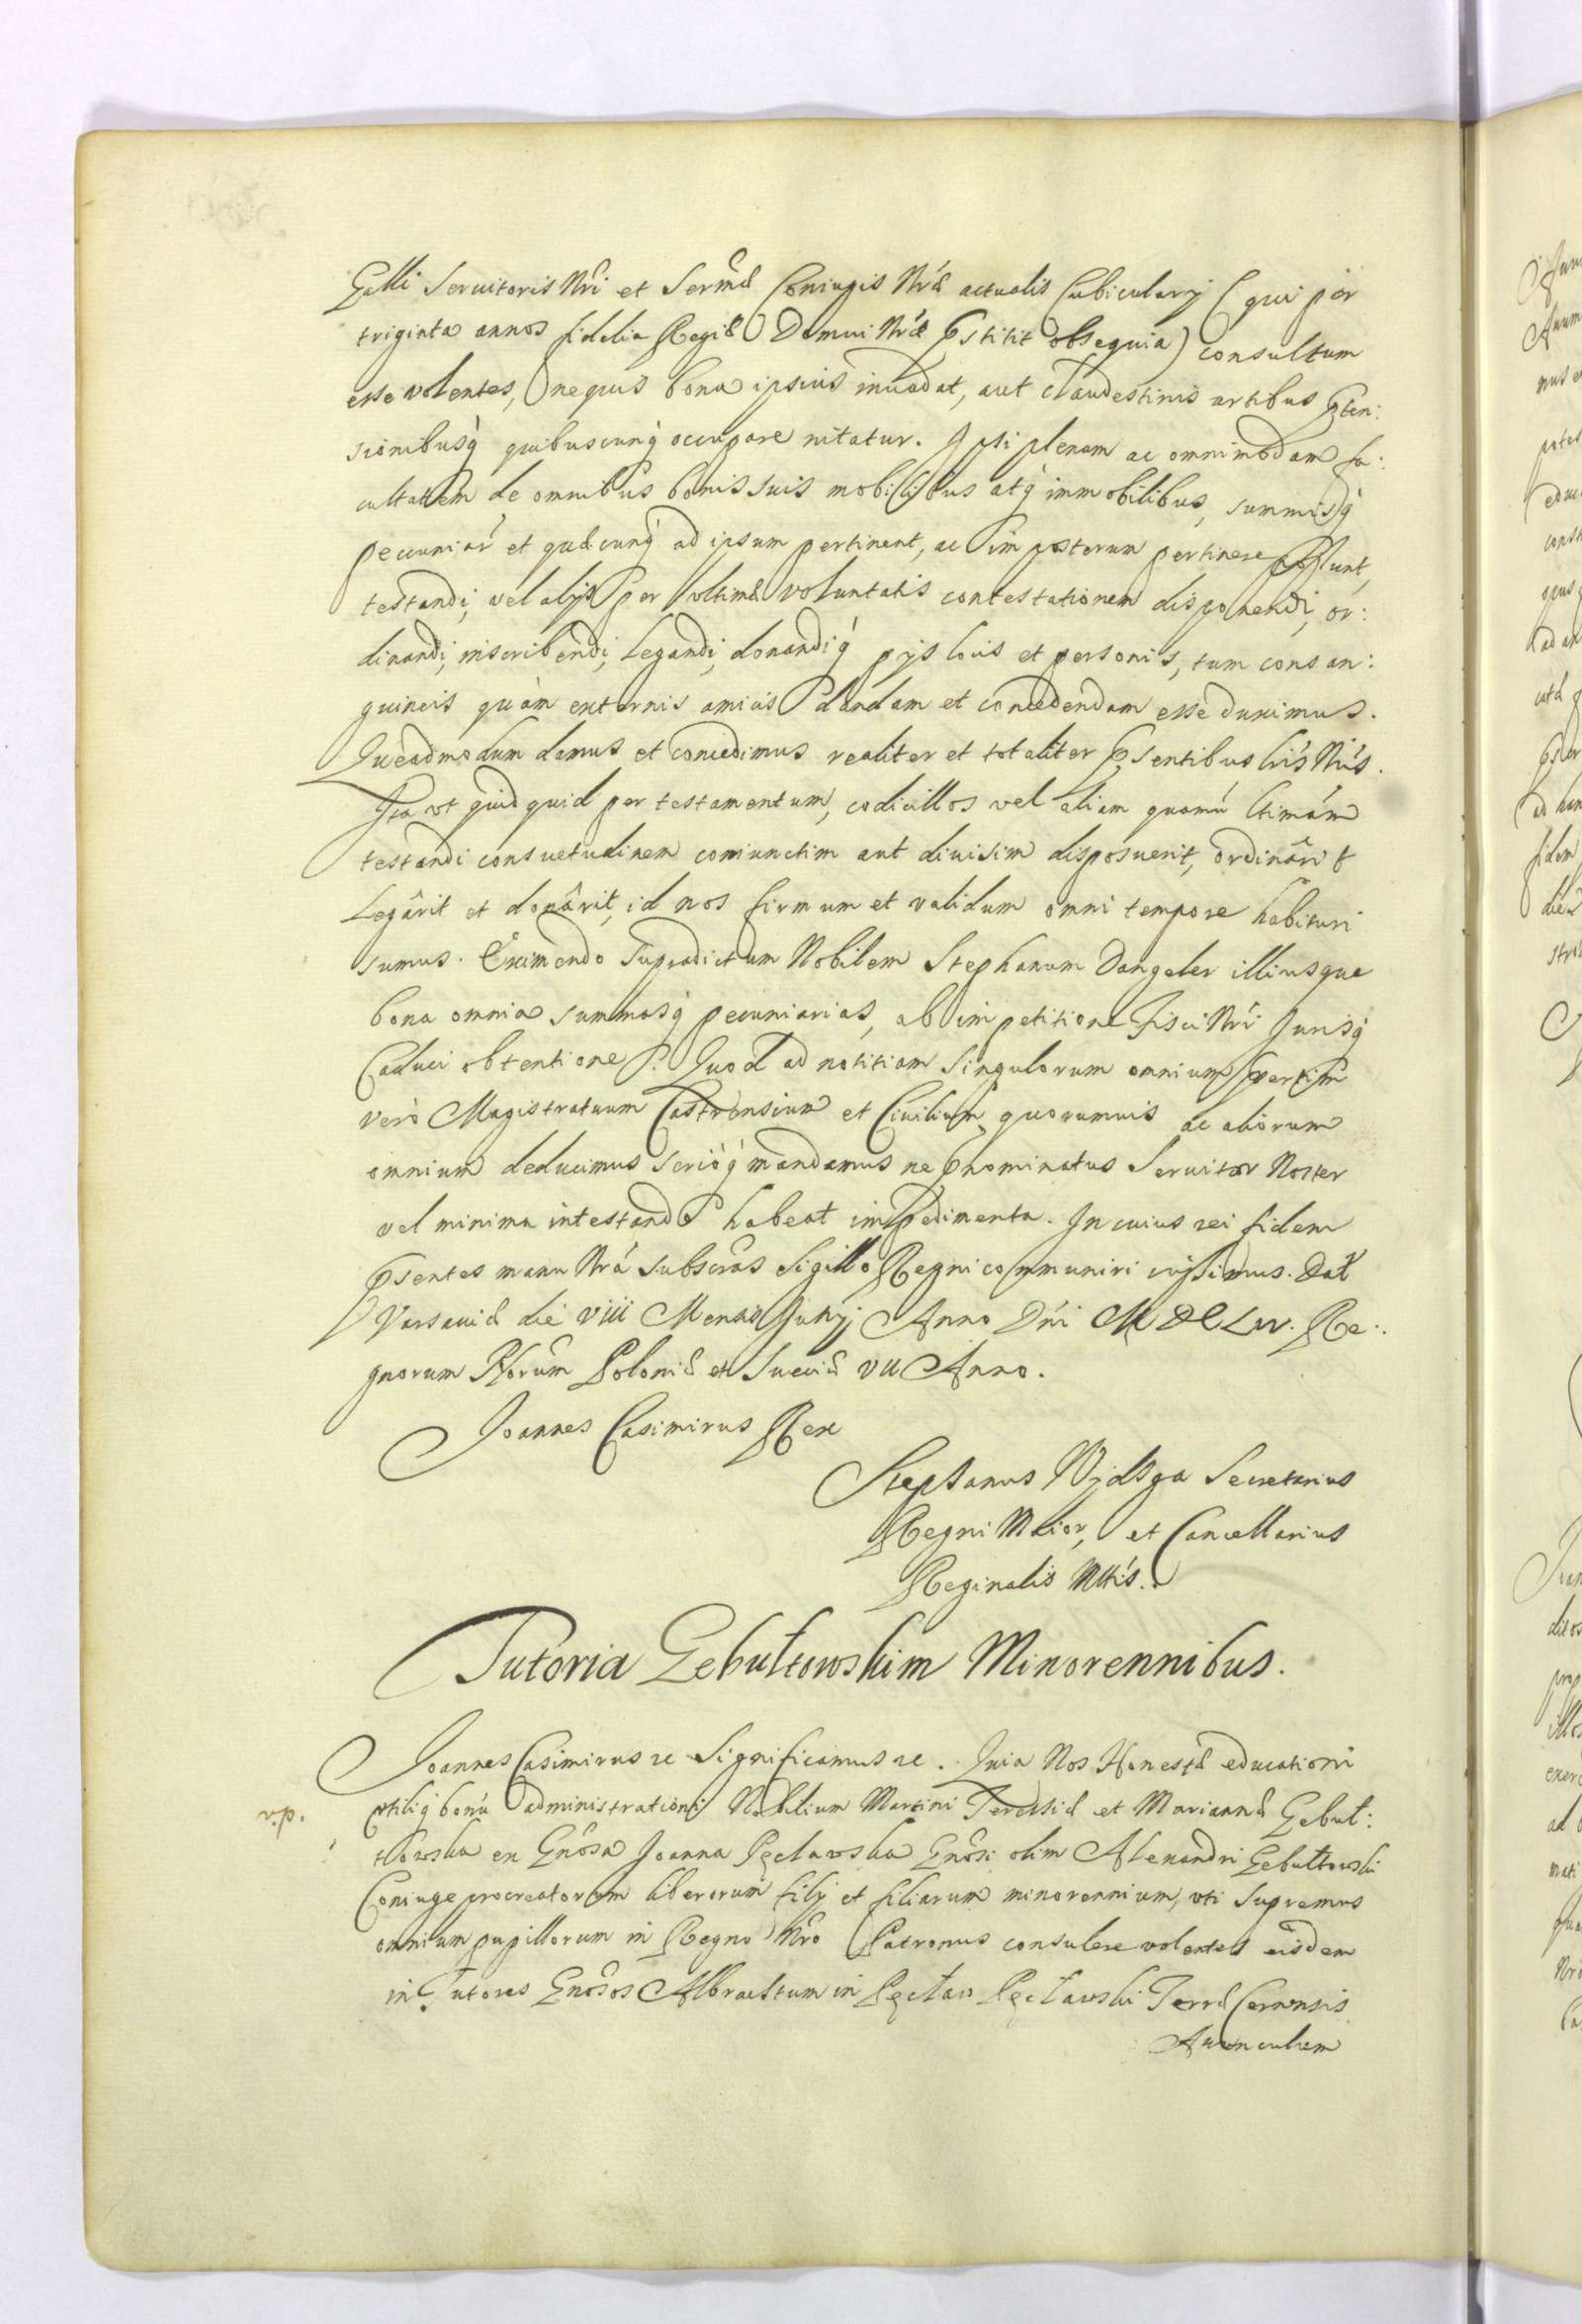 Galli Seruitoris Nri et Sermæ Coniugis Nræ actualis Cubicularij (qui per
triginta annos fidelia Regiæ Domui Nræ pstitit obsequia) consultum
esse volentes, ne quis bona ipsius inuadat, aut clandestinis artibus pten:
sionibusq́ quibuscunq́ occupare nitatur. Ipsi plenam ac omnimodam fa:
cultatem de omnibus bonis suis mobilibus atq́ immobilibus, summisq́
pecuniar et quæcunq́ ad ipsum pertinent, ac in posterum pertinere possunt,
testandi, vel alijs per vltimæ voluntatis contestationem disponendi, or:
dinandi, inscribendi, legandi, donandiq́ pijs locis et personis, tum consan:
guineis quàm externis amicis dandam et concedendam esse duximus.
Queadmodum damus et concedimus realiter et totaliter psentibus lris Nris.
Ita vt quidquid per testamentum, codicillos vel aliam quamú ltimám
testandi consuetudinem coniunctim aut diuisim disposuerit, ordinârit
Legârit et donârit, id nos firmum et validum omni tempore habituri
sumus. Eximendo supradictum Nobilem Stephanum Dangeler illiusque
bona omnia summasq́ pecuniarias, ab impetitione Fisci Nri Jurisq́
Caduci obtentione. Quod ad notitiam singulorum omnium pertim
verò Magistratuum Castrensium et Ciuilium quorumuis ac aliorum
omnium deducimus seriòq́ mandamus ne pnominatus Seruitor Noster
vel minima in testando habeat impedimenta. In cuius rei fidem
psentes manu Nrá subscras Sigillo Regni communiri iussimus. Dat
Varsauiæ die VIII Mensis Julij Anno Dni MDCLIV. Re:
gnorum Nrorum Poloniæ et Sueciæ VII Anno.
Joannes Casimirus Rex
Stephanus Wydsga Secretarius
Regni Maior, et Cancellarius
Reginalis Mttis.
Tutoria Gebułtowskim Minorennibus.
Joannes Casimirus rc Significamus rc. Quia Nos Honestæ educationi
v.p.
vtiliq́ bonú administrationi Nobilium Martini Teresiæ et Mariannæ Gebuł:
towska ex Gnosa Joanna Pęcławska Gnosi olim Alexandri Gebułtowski
Coniuge procreatorum liberorum filij et filiarum minorennium, vti Supremus
omnium pupillorum in Regno Nro Patronus consulere volentes eisdem
in Tutores Gnosos Albrachtum in Pęcław Pęcławski Terræ Cernensis
Auunculum